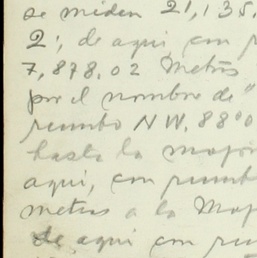 se miden 21,135.
2; de aqui, con
7,878.02 Metros
por el nombre de "
rumbo NW. 88°0
hasta la mojon
aqui, con rumbo
metros a la Moj
de aqui con ru